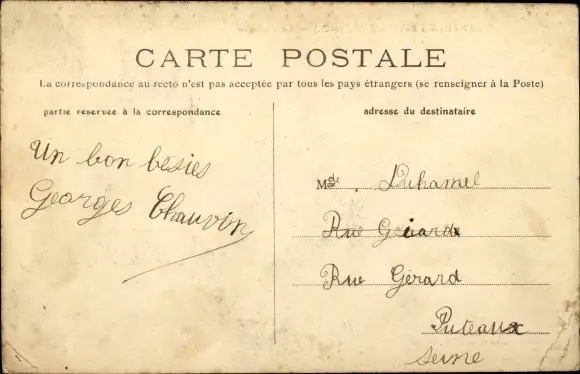 CARTE POSTALE
La correspondance au recto n'est pas acceptée par tous les pays étrangers (se renseigner à la Poste)
partie réservée à la correspondance
adresse du destinataire
Un bon bésies
Georges Chauvin
Mde. Duhamel
Rue Gérard
Puteaux
Seine